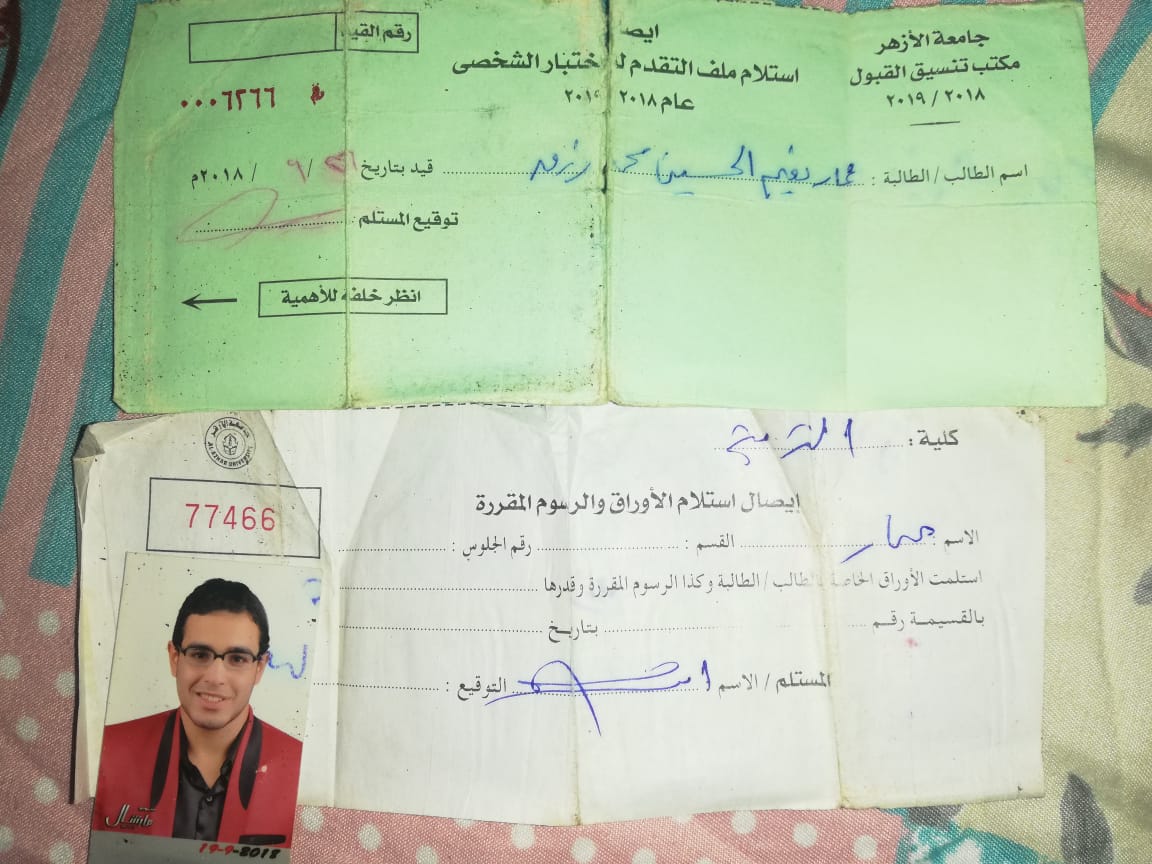 جامعة الأزهر
مكتب تنسيق القبول
٢٠١٨ / ٢٠١٩
ايصـ
استلام ملف التقدم لـ ختبار الشخصى
عام ٢٠١٨ ٢٠١٩
رقم القيد
٠٠٠٦٢٦٦
اسم الطالب / الطالبة : عمار نعيم الحسين
قيد بتاريخ ٢٦ / ٩ / ٢٠١٨م
توقيع المستلم :
انظر خلفه للأهمية
كلية :
AL-AZHAR UNIVERSITY
77466
إيصال استلام الأوراق والرسوم المقررة
الاسم : عمار القسم : رقم الجلوس :
استلمت الأوراق الخاصة بالطالب / الطالبة وكذا الرسوم المقررة وقدرها
بالقسيمـة رقـم بتاريـخ
المستلم / الاسم التوقيع :
مارشال
19-9-2018